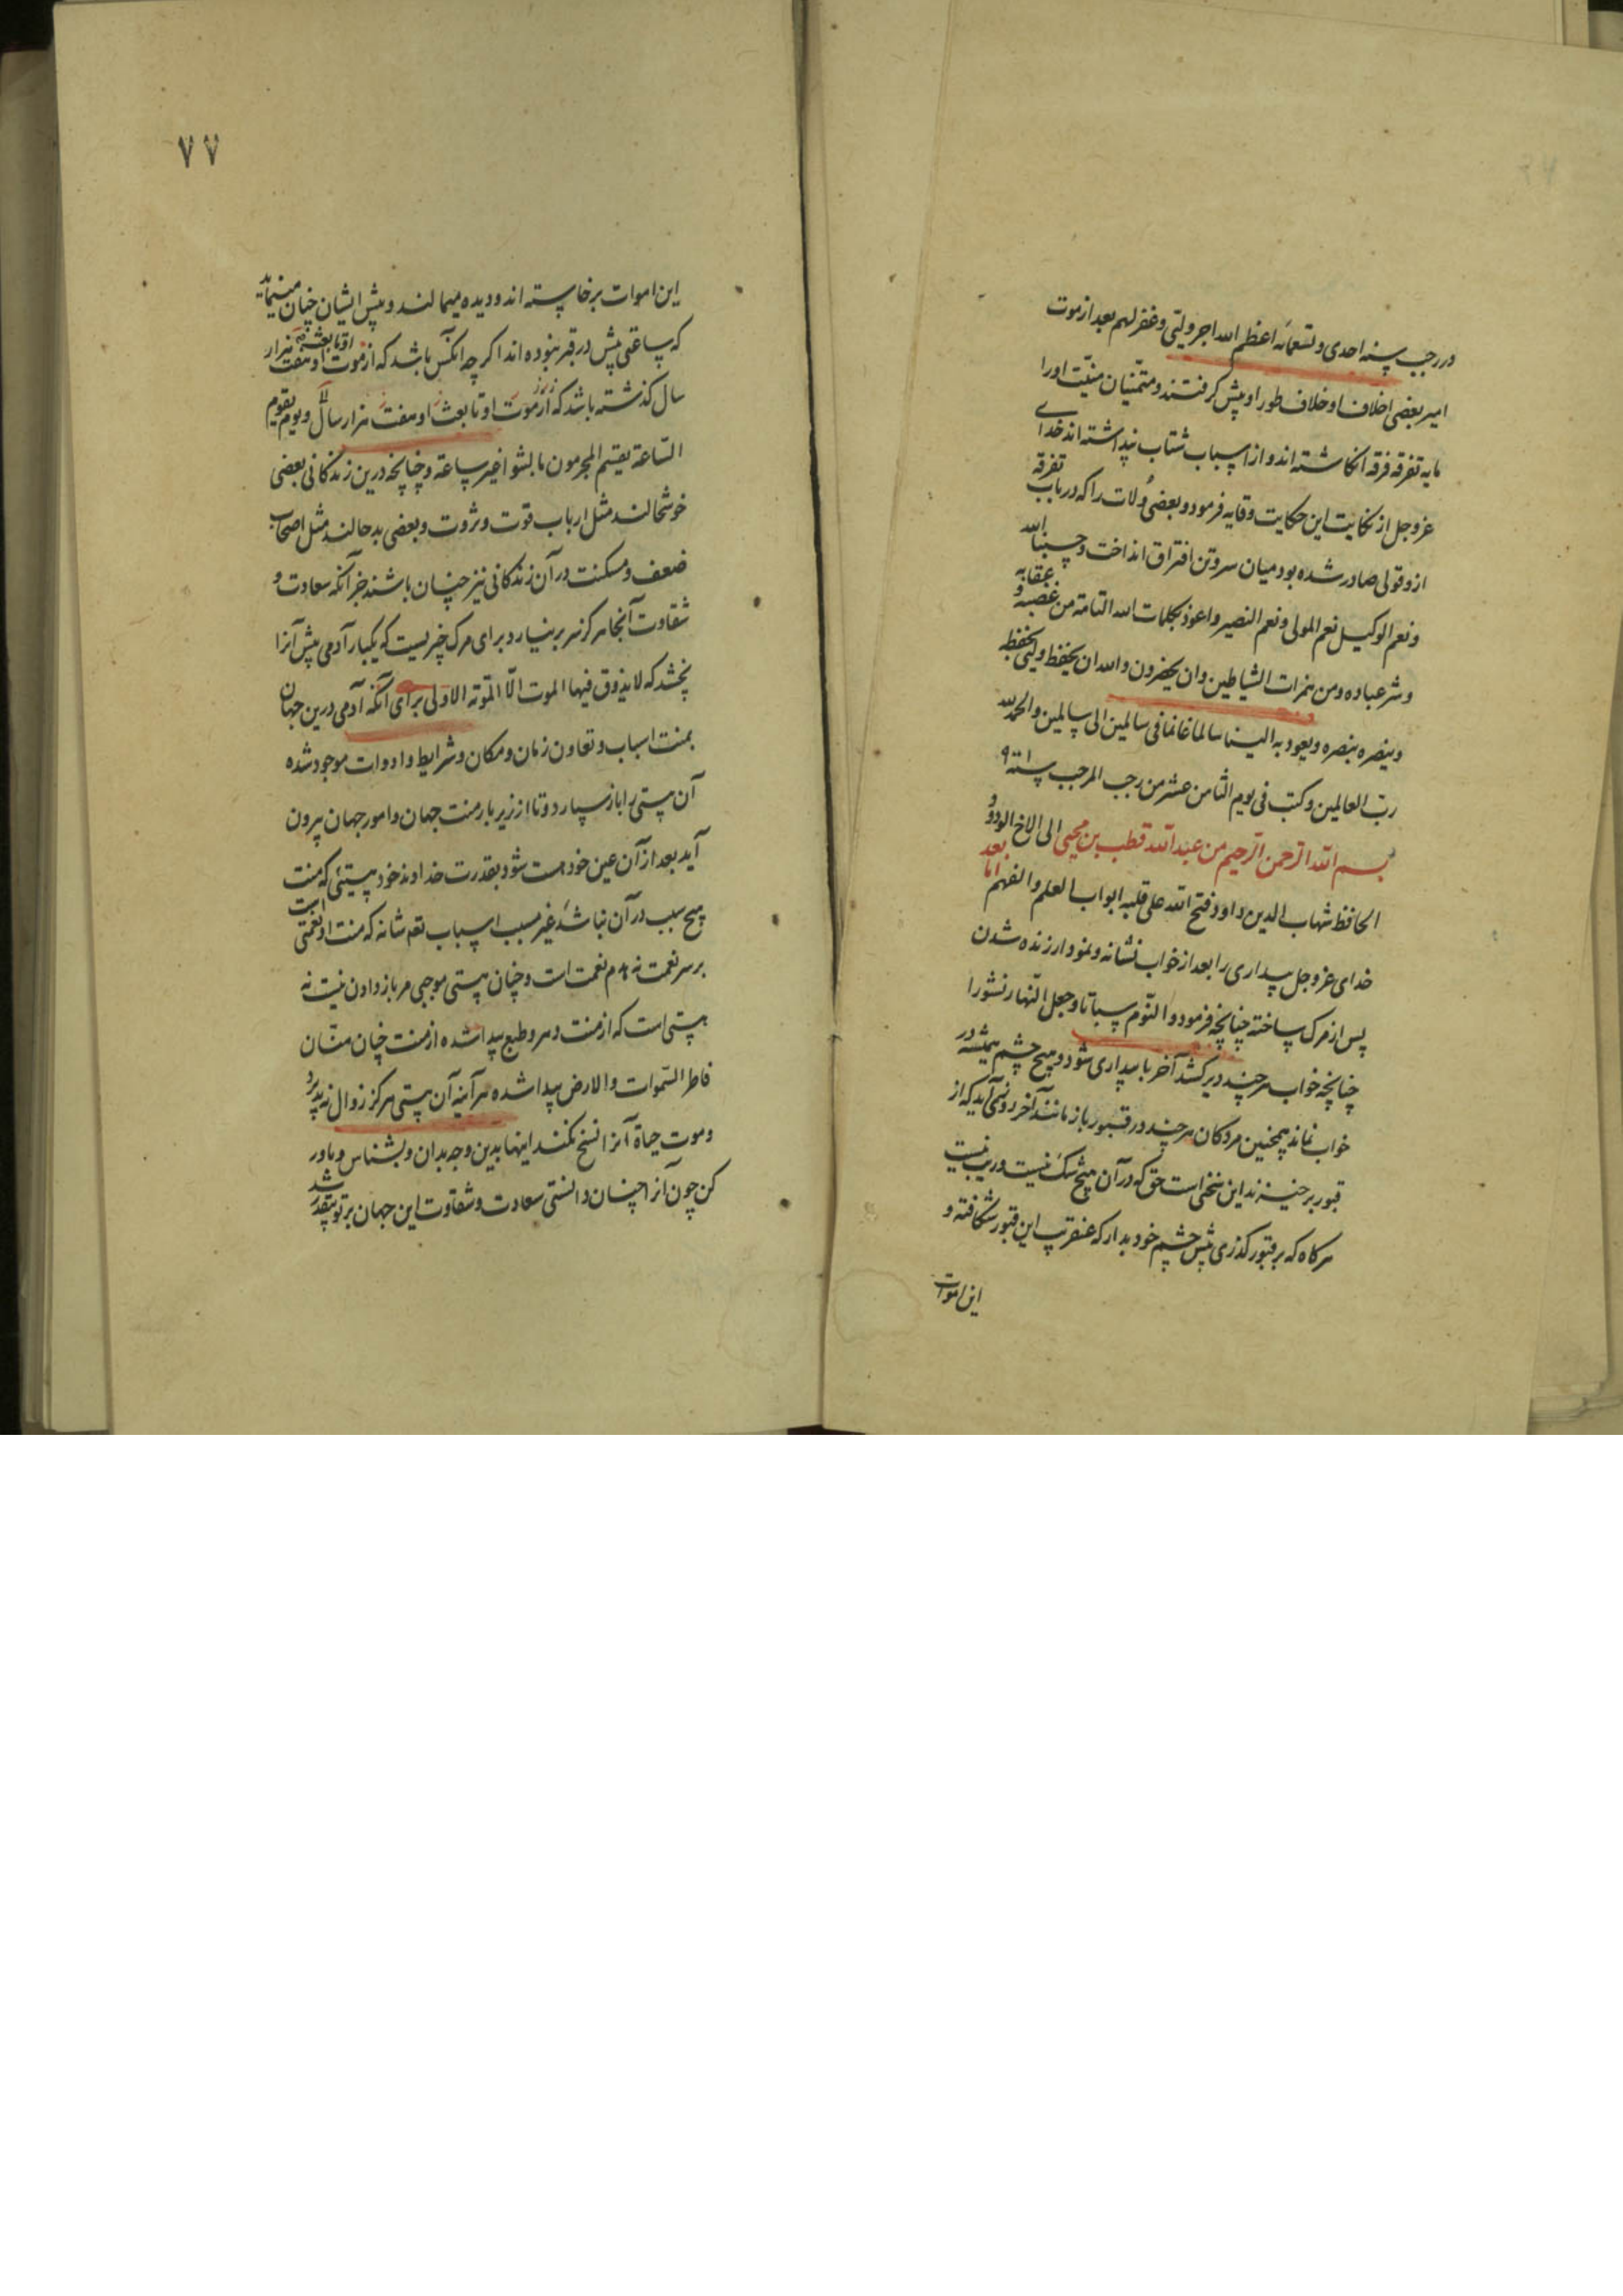 در رجب سنه احدی و تسعمائه اعظم الله اجر ولیتی و غفر لهم بعد از موت
امیر بعضی اخلاف او خلاف طور او پیش کرفتند و متمنیان منیت او را
مایه تفرقه فرقه انکاشته اند و از اسباب شتاب پنداشته اند خدای
عز و جل از نکایت این حکایت وقایه فرمود و بعضی ولات را که در باب تفرقه
ازو قولی صادر شده بود میان سر و تن افتراق انداخت و حسبنا الله
و نعم الوکیل نعم المولی و نعم النصیر و اعوذ بکلمات الله التامة من غضبه و عقابه
و شر عباده و من همزات الشیاطین و ان یحضرون و الله ان یحفظ ولیی بحفظه
و ینصره بنصره و یعود به الینا سالما غانما فی سالمین الی سالمین و الحمد لله
رب العالمین و کتب فی یوم الثامن عشر من رجب المرجب سنة ٩٠١
بسم الله الرحمن الرحیم من عبد الله قطب بن محیی الی الاخ الودود
الحافظ شهاب الدین داود فتح الله علی قلبه ابواب العلم و الفهم اما بعد
خدای عز و جل بیداری را بعد از خواب نشانه و نمودار زنده شدن
پس از مرک ساخته چنانچه فرمود و النوم سباتا و جعل النهار نشورا
چنانچه خواب هر چند دیر کشد آخر با بیداری شود و هیچ چشم همیشه در
خواب نماند همچنین مردکان هر چند در قبور باز مانند آخر روزی آید که از
قبور برخیزند این سخنی است حق که در آن هیچ شک نیست و ریب نیست
هرکاه که بر قبور کذری پیش چشم خود بدار که عنقریب این قبور شکافته و
این اموات
٧٧
این اموات برخاسته اند و دیده میمالند و پیش ایشان چنان مینماید
که ساعتی پیش در قبر نبوده اند اکرچه آنکس باشد که از موت او تا بعث او هفت هزار
سال کذشته باشد که از موت او تا بعث او هفت هزار سال و یوم تقوم
الساعة یقسم المجرمون ما لبثوا غیر ساعة و چنانچه درین زندکانی بعضی
خوشحالند مثل ارباب قوت و ثروت و بعضی بدحالند مثل اصحاب
ضعف و مسکنت در آن زندکانی نیز چنان باشند جز آنکه سعادت و
شقاوت آنجا هرکز سر بر نیارد برای مرک چیزیست که یکبار آدمی پیش آنرا
بچشد که لا یذوق فیها الموت الا الموتة الاولی برای آنکه آدمی درین جهان
بمنت اسباب و تعاون زمان و مکان و شرایط و ادوات موجود شده
آن هستی را باز سپارد و تا از زیر بار منت جهان و امور جهان بیرون
آید بعد از آن عین خود هست شود بقدرت خداوند خود هستیئی که منت
هیچ سبب در آن نباشد غیر مسبب اسباب تعم شانه که منت او نعمتی است
بر سر نعمت نه هدم نعمت است و چنان هستی موجبی مر باز دادن نیست نه
هستی است که از منت دهر و طبع پیدا شده از منت چنان منّان
فاطر السموات و الارض پیدا شده هر آینه آن هستی هرکز زوال نپذیرد
و موت حیاة آنرا نسخ نکند اینها بدین وجه بدان و بشناس و باور
کن چون آنرا چنان دانستی سعادت و شقاوت این جهان بر تو بیقدر شد